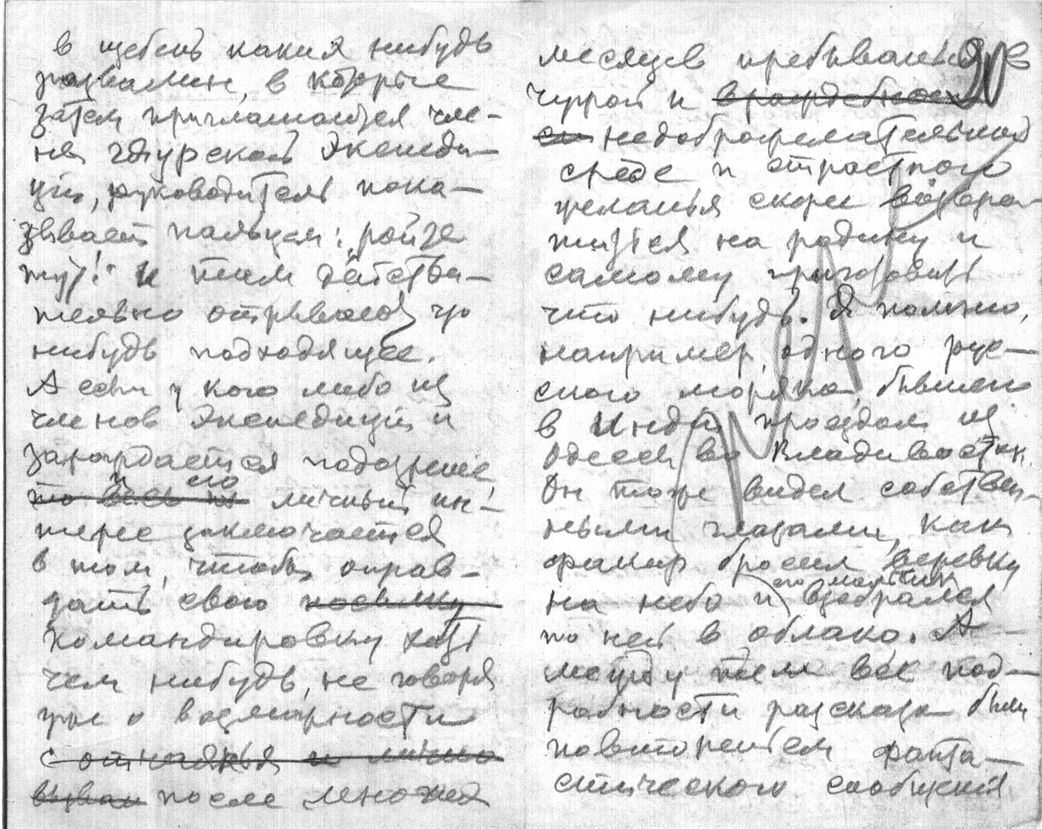 в щебень какия нибудь
развалин, в которые
затем приглашаются чле-
ны экспеди-
ции, руководитель пока-
зывает пальцем: ройте
тут! И там действи-
тельно отрывают что
нибудь подходящее.
А если у кого либо из
членов экспедиции и
зарождается подозрение
то весь его личный ин-
терес заключается
в том, чтобы оправ-
дать свою посылку
командировку хоть
чем нибудь, не говоря
уже о возможности
с отчаянья и лично
после многих
месяцев пребыванья в
чужой и враждебной
недоброжелательной
среде и страстного
желанья скорее возвра-
титься на родину и
самому приготовить
что нибудь. Я помню,
например, одного рус-
ского моряка, бывшего
в Индии проездом из
Одессы во Владивосток.
Он тоже видел собствен-
ными глазами, как
факир бросил веревку
на небо и его мальчик взобрался
по ней в облако. А
между тем все под-
робности рассказа были
повтореньем фанта-
стическом сообщения